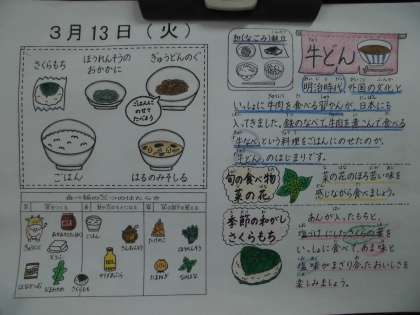 3月13日(火)
さくらもち
ほうれんそうの
おかかに
ぎゅうどんのぐ
ごはんに
のせて
たべよう
ごはん
はるのみそしる
和(なごみ)献立
牛どん
明治時代、外国の文化と
いっしょに牛肉を食べる習かんが、日本にも
入ってきました。鉄のなべで、牛肉を煮こんで食べる
牛なべという料理をごはんにのせたのが、
牛どんのはじまりです。
旬の食べ物
菜の花
菜の花のほろ苦い味を
感じながら食べましょう。
季節の和がし
さくらもち
あんが入ったもちと、
塩づけにしたさくらの葉を
いっしょに食べて、あま味と
塩味がまざり合ったおいしさを
楽しみましょう。